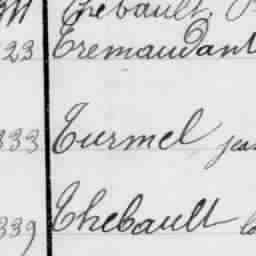 Thébault,
23 Tremaudant
333 Turmel jea
339 Thebault